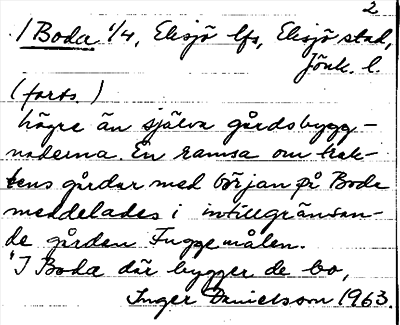 2
/ Boda 1/4, Eksjö lfs, Eksjö stad,
Jönk. l.
(forts.)
högre än själva gårdsbygg-
naderna. En ramsa om trak-
tens gårdar med början på Boda
meddelades i intillgränsan-
de gården Fuggemålen.
"I Boda där bygger de bo,
Inger Danielsson 1963.